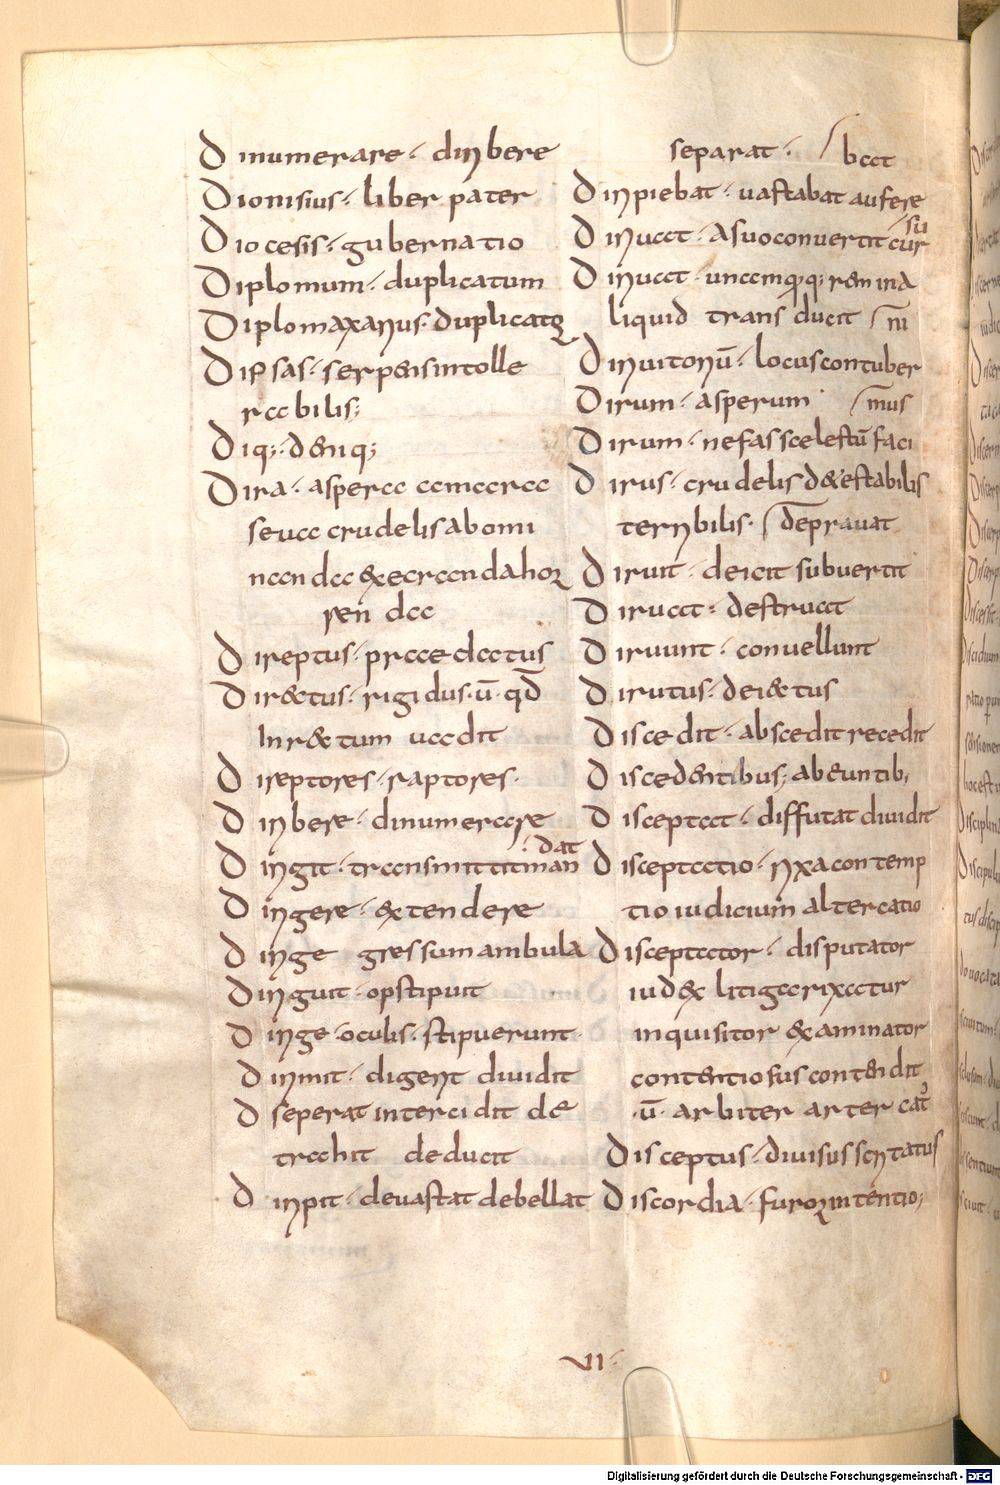 Dinumerare· diribere
Dionisius· liber pater
Diocesis· gubernatio
Diplomum· duplicatum
Diplomaxarius· duplicator
Dipsas· serpens intolle
rabilis;
Diq;· deniq;
Dira· aspera amara
seua crudelis abomi
nanda & execranda hor
renda
Direptus· praedatus
Dir&tus· rigidus· ū· qđ
In r&tum uadit
Direptores· raptores·
Diribere· dinumerare
Dirigit· transmittit man
·dat
Dirigere· extendere
Dirige gressum ambula
Diriguit· opstipuit
Dirige· oculis· stipuerunt·
Dirimit· digerit diuidit
seperat intercidit de
trahit deducit
Diripit· deuastat debellat
separat· / bat
Diripiebat· uastabat aufere
Diriuat· a suo conuertit cur
su
Diriuat· unamquaq; rem in a
liquid trans ducit / ni
Diriuitoriū· locus contuber
Dirum· asperum / mus
Dirum· nefas scelestū faci
Dirus· crudelis d&estabilis
terribilis· / deprauat
Diruit· deicit subuertit
Diruat· destruat
Diruunt· conuellunt
Dirutus· dei&tus
Discedit· abscedit recedit
Discedentibus; abeuntib;
Disceptat· diffutat diuidit
Disceptatio· rixa contemp
tio iudicium altercatio
Disceptator· disputator
iudex litigat rixatur
inquisitor examinator
contentiosus contendit
·ū· arbiter arter cat
Disceptus· diuisus scritatus
Discordia· furor intentio;
VI·
Digitalisierung gefördert durch die Deutsche Forschungsgemeinschaft - DFG